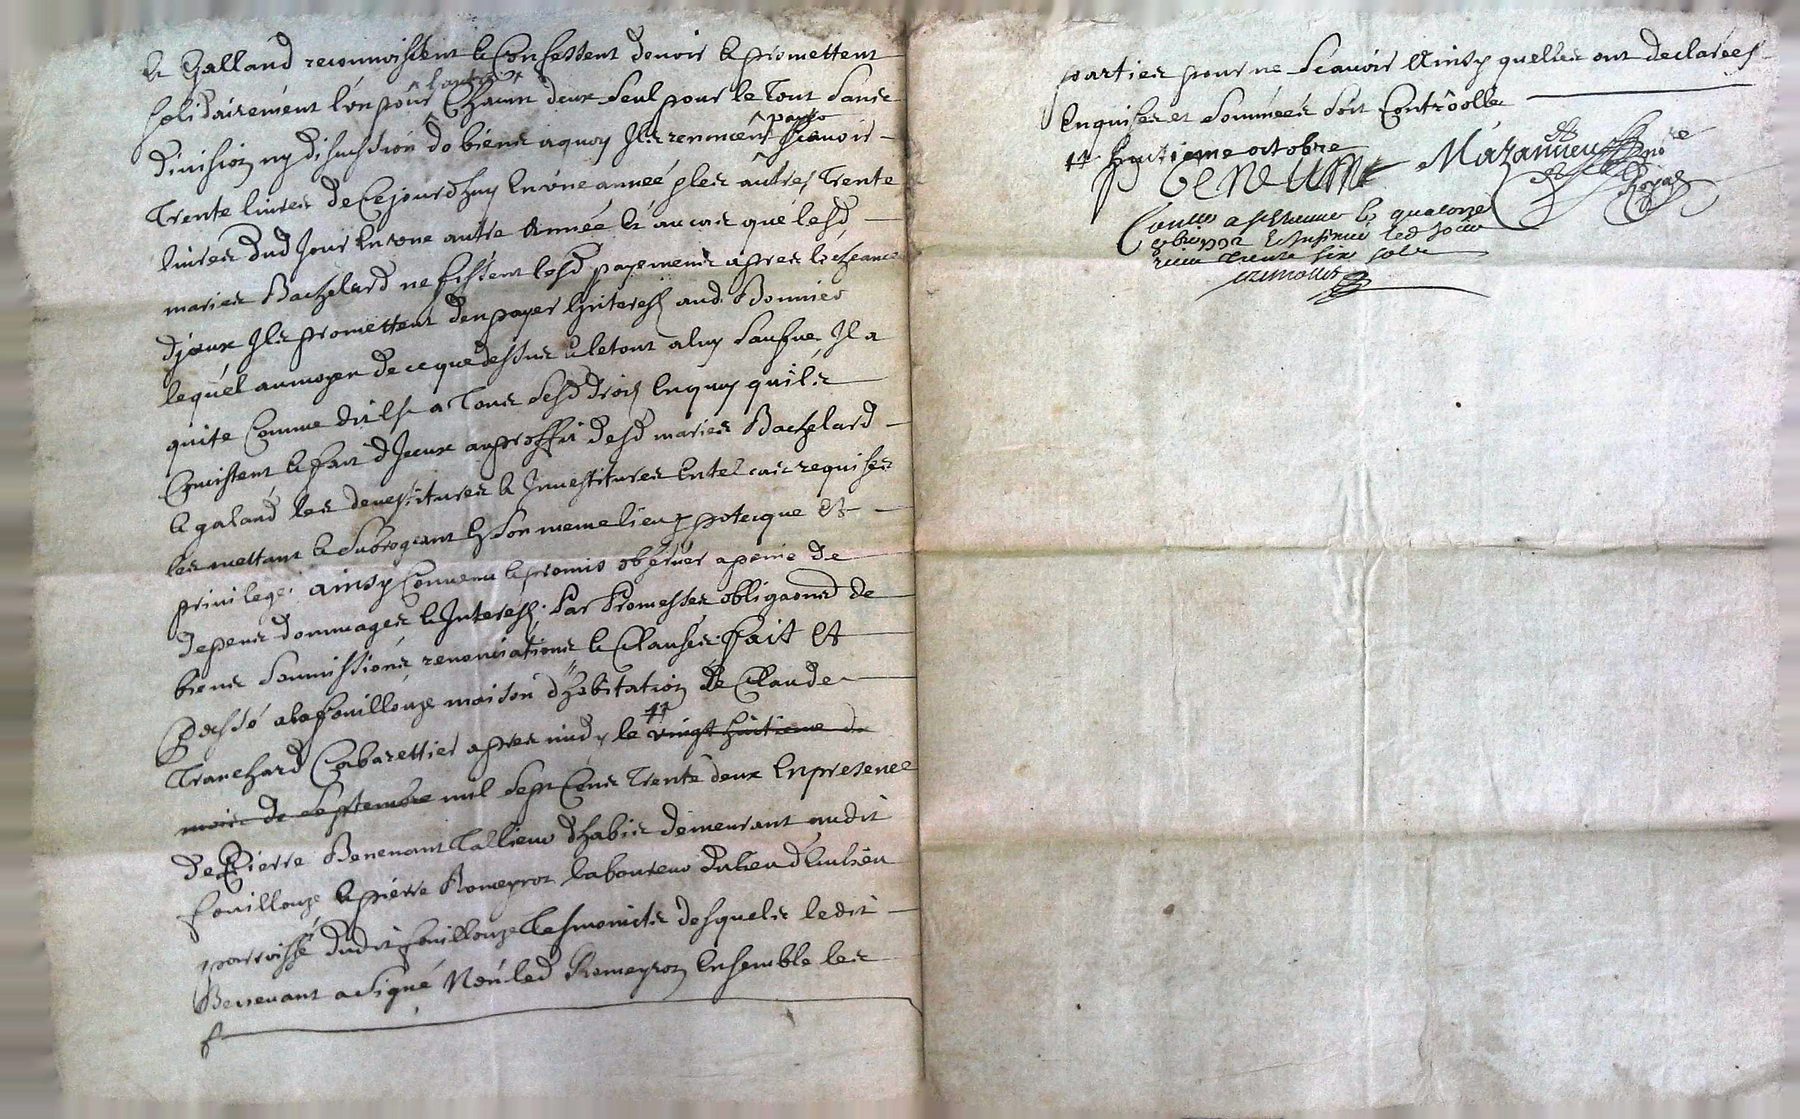 et Galland reconnoissent et Confessent devoir et promettent
solidairement l'un pour l'autre et Chacun deux seul pour le Tout sans
division ny discussion de biens a quoy Ils renoncent scavoir
Trente livres de Cejourdhuy en vne année & les autres Trente
livres dud Jour en vne autre Année et au cas que lesd
mariés Bachelard ne fissent lesd payemens apres lecheance
djceux Ils promettent den payer Linterest aud Bonnier
lequel au moyen de ce que dessus et le tout a luy sauf ne Il a
quite Comme dit est a Tous sesd droits en quoy quils
Consistent et fait dJceux au proffit desd mariés Bachelard
et galand les devestitures et Investitures en tel cas requises
les mettant et subrogeant en son meme lieu hypotecque et
privilege. ainsy Convenu et promis observer a peine de
depens dommages et Interests. Par Promesses obligaons de
biens soumissions renonciations et Clauses. fait et
passé a la fouillouze maison d'habitation de Claude
Tranchard Cabarettier apres midy le # vingt huitieme du
mois de septembre mil sept Cens Trente deux En presence
de Pierre Benevant Tallieur dhabis demeurant audit
fouillouze et pierre Romeyron laboureur du lieu
parroisse dudit fouillouze Tesmoints desquels ledit
Benevant a signé Non led Romeyron Ensemble les
parties pour ne scavoir Ainsy quelles ont declarées
Enquises et sommées soit Controolle
# huitieme octobre
benevant Mazanieu no re Royal
Con lle a st le quatorze
8bre 1732 et Insinué led Jour
receu Trente six sols